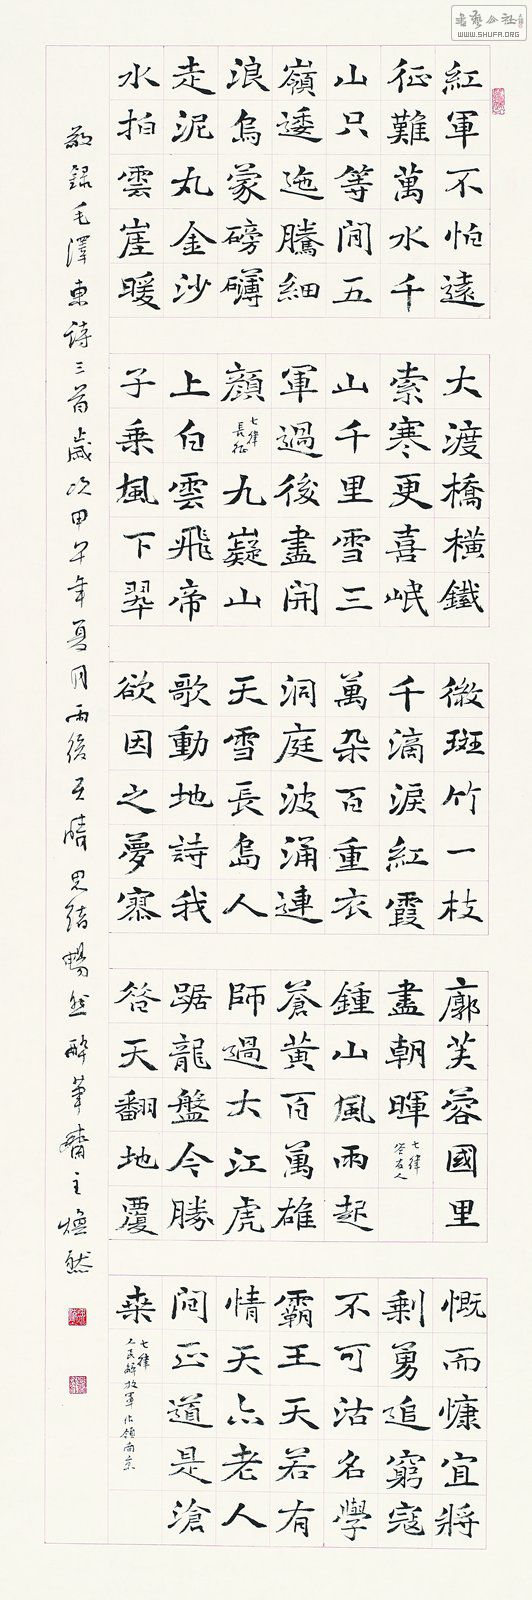 書藝公社
WWW.SHUFA.ORG
紅軍不怕遠
征難萬水千
山只等閒五
嶺逶迤騰細
浪烏蒙磅礴
走泥丸金沙
水拍雲崖暖
大渡橋橫鐵
索寒更喜岷
山千里雪三
軍過後盡開
顏七律長征九嶷山
上白雲飛帝
子乘風下翠
微斑竹一枝
千滴淚紅霞
萬朵百重衣
洞庭波涌連
天雪長島人
歌動地詩我
欲因之夢寥
廓芙蓉國里
盡朝暉七律答友人
鍾山風雨起
蒼黃百萬雄
師過大江虎
踞龍盤今勝
昔天翻地覆
慨而慷宜將
剩勇追窮寇
不可沽名學
霸王天若有
情天亦老人
間正道是滄
桑七律人民解放軍佔領南京
敬錄毛澤東詩三首歲次甲午年夏月雨後天晴思緒暢然醉筆齋主煥然